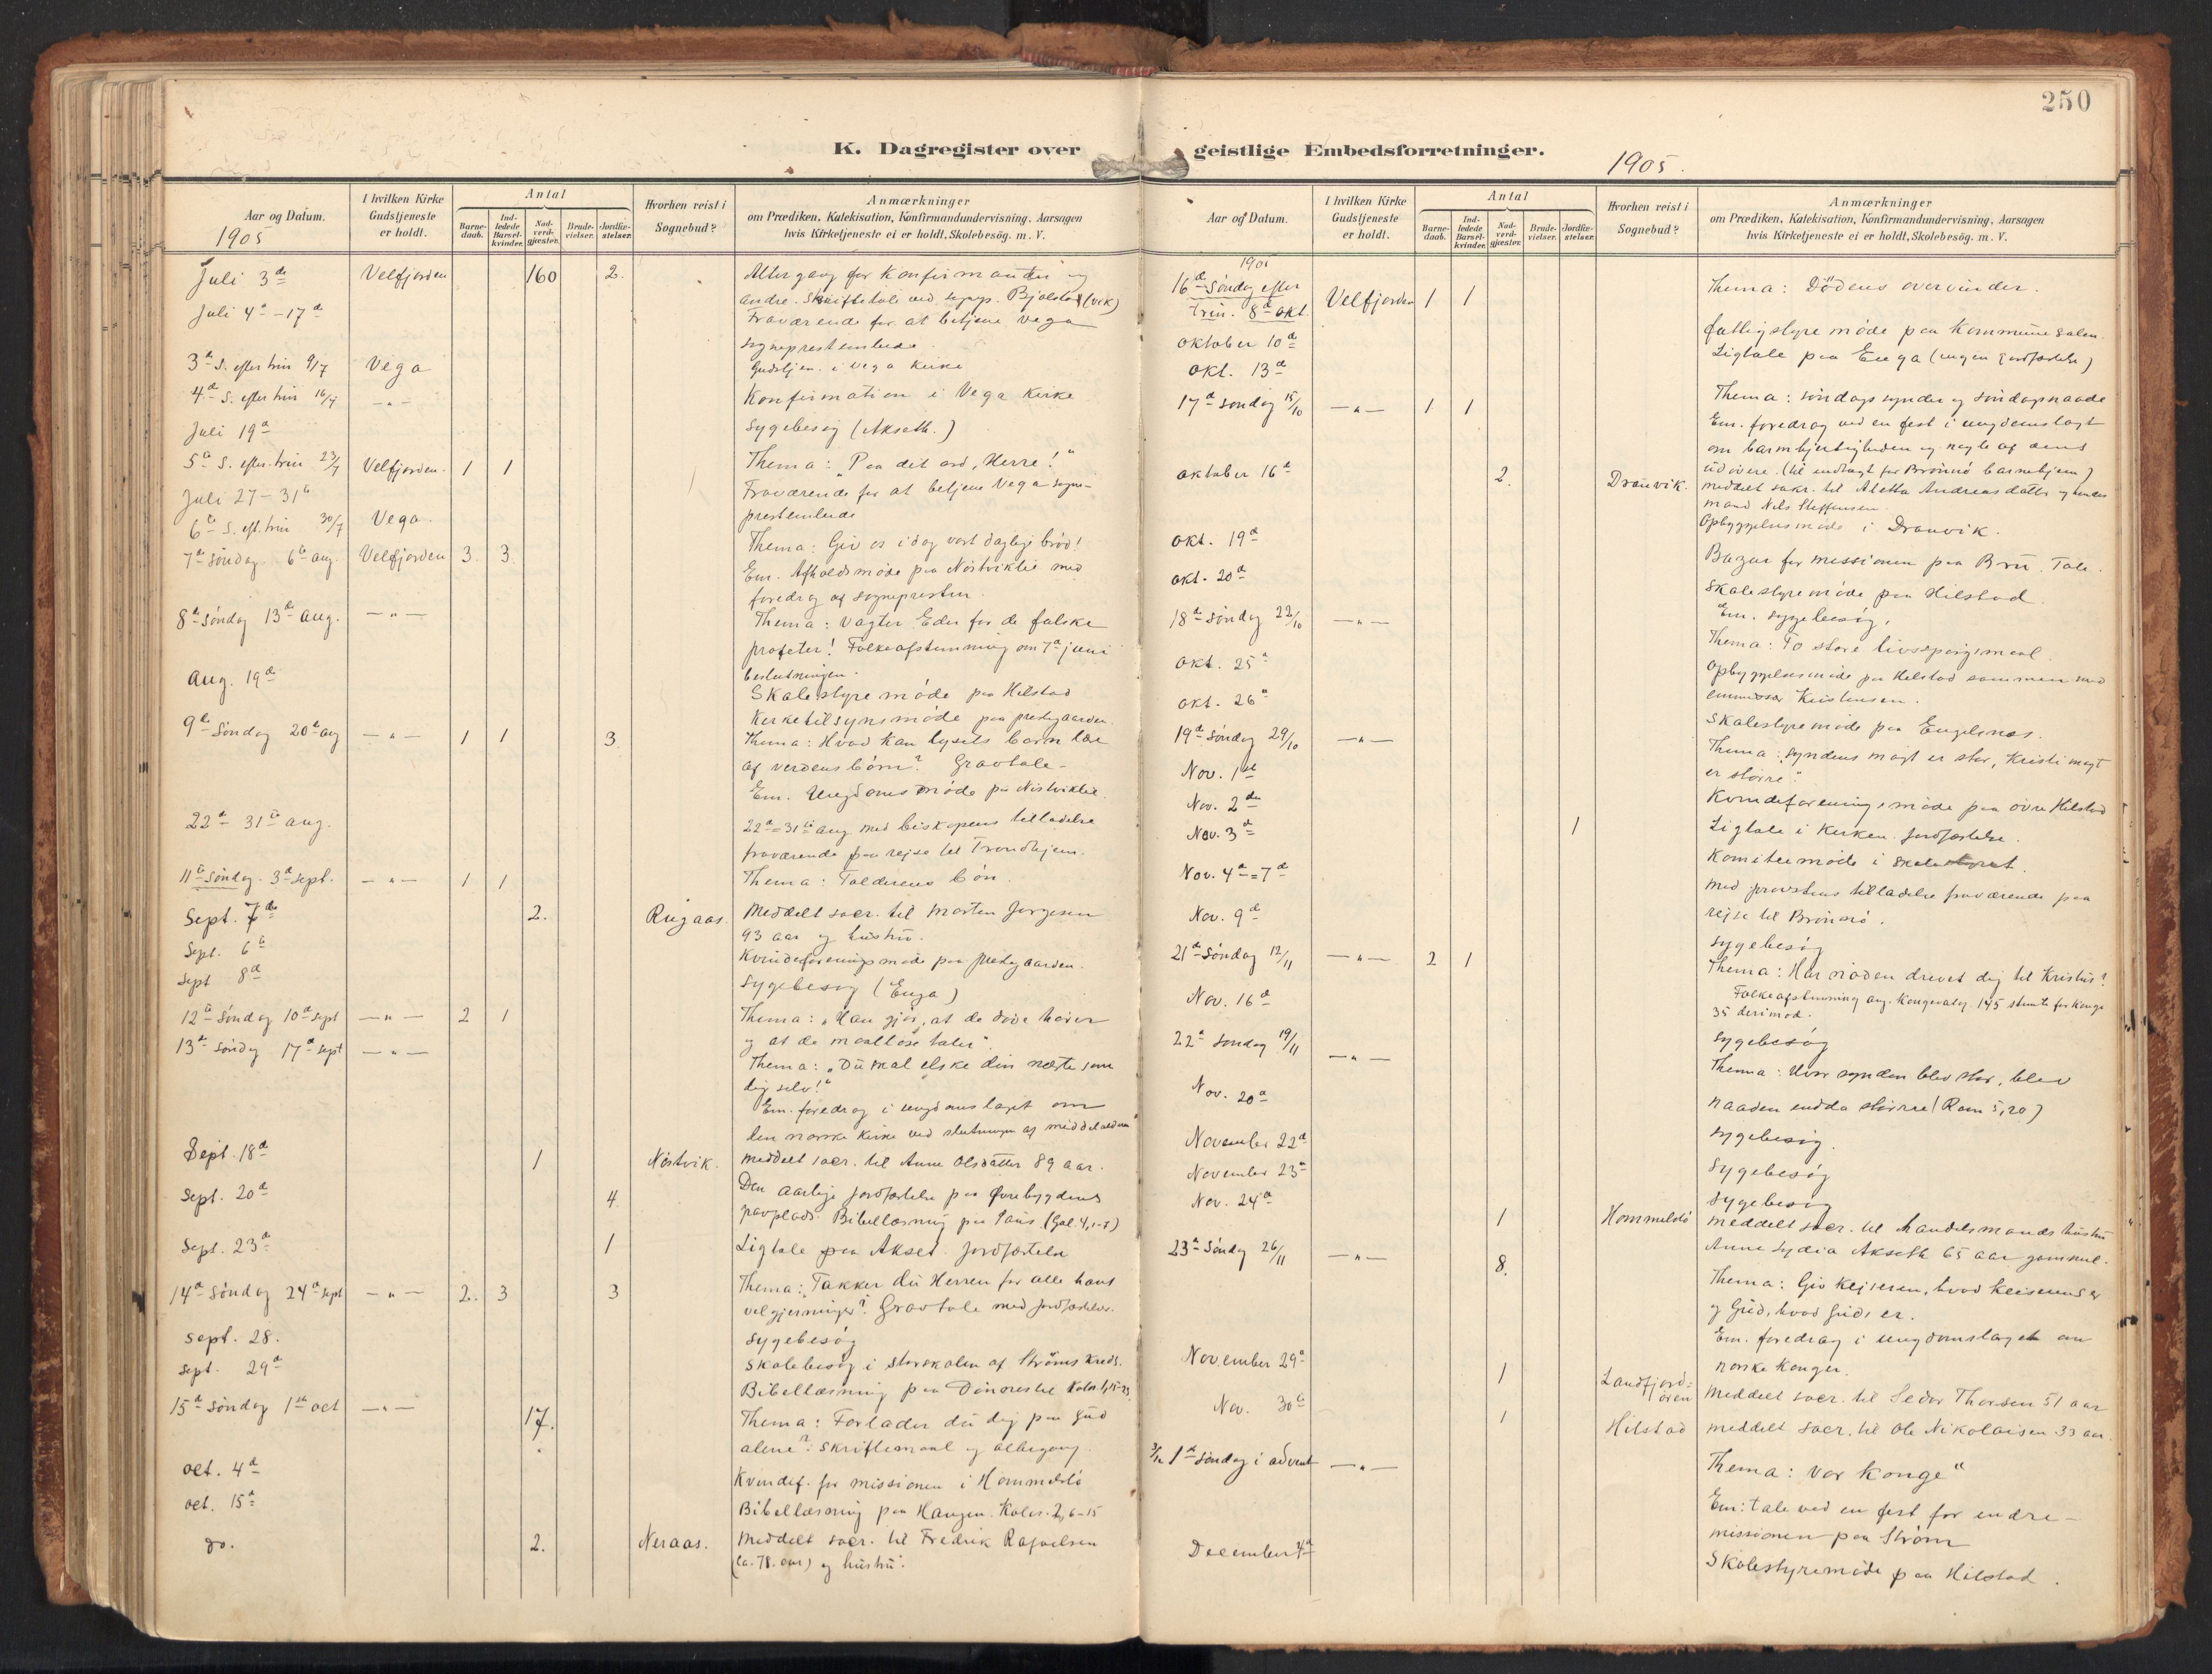 250
K. Dagregister over geistlige Embedsforretninger.
1905.
Aar og Datum.
1905
I hvilken Kirke Gudstjeneste er holdt.
Antal
Barnedaab.
Indledede Barselkvinder.
Nadverdgjester.
Brudevielser.
Jordfæstelser.
Hvorhen reist i Sognebud?
Anmærkninger
om Prædiken, Katekisation, Konfirmandundervisning, Aarsagen
hvis Kirketjeneste ei er holdt, Skolebesög. m. V.
Juli 3de Velfjorden 160 2. Altergang for Konfirmanter og
andre. Skriftetale ved sognpr. Bjølstad (vik)
Juli 4de - 17de Fraværende for at betjene Vega
sogneprestembede.
3de S. efter trin 9/7 Vega Gudstjen. i Vega Kirke
4de S. efter trin 16/7 — " — Konfirmation i Vega Kirke
Juli 19de Sygebesøg (Akseth.)
5te S. efter trin 23/7 Velfjorden. 1 1 Thema: "Paa dit ord, Herre!"
Juli 27 - 31te Fraværende for at betjene Vega sogne-
prestembede
6te S. eft. trin 30/7 Vega.
7de Søndag 6te aug. Velfjorden 3. 3. Thema: Giv os idag vort daglige brød!
Em. Afholdsmøde paa Nöstviklie med
foredrag af sognepresten.
8de Søndag 13de aug. — " — Thema: Vogter Eder for de falske
profeter! Folkeafstemning om 7de juni
beslutningen.
Aug. 19de Skolestyremøde paa Hilstad
Kirketilsynsmøde paa prestgaarden.
9de Søndag 20de aug — " — 1 1 3. Thema: Hvad kan lysets børn lære
af verdens børn? Gravtale -
Em. Ungdomsmøde paa Nöstviklie.
22de - 31te aug. 22de = 31te aug med biskopens tilladelse
fraværende paa rejse til Trondhjem.
11te Søndag. 3de sept. — " — 1 1 Thema: Tolderens bøn.
Sept. 7de 2. Rugaas. Meddelt sacr. til Morten Jørgesen
93 aar og hustru.
Sept. 6te Kvindeforeningsmøde paa prestgaarden.
Sept 8de Sygebesøg (Enga)
12te Søndag 10de sept — " — 2 1 Thema: "Han gjør, at de døve hører
og at de maalløse taler".
13de Søndag 17de sept — " — Thema: "Du skal elske din næste som
dig selv!"
Em. foredrag i ungdomslaget om
den norske kirke ved slutningen af middelalderen
Sept. 18de 1 Nöstvik. Meddelt sacr. til Anne Olsdatter 89 aar.
Sept. 20de 4. Den aarlige jordfæstelse paa Øvrebygdens
gravplads. Bibellæsning paa Saus. (Gal. 4,1-7)
Sept. 23de 1 Ligtale paa Akset. Jordfæstelse
14de Søndag 24de sept — " — 2. 3 3 Thema: "Takker du Herren for alle hans
velgjerninger"? Gravtale med jordfæstelse.
Sept. 28. Sygebesøg
Sept. 29de Skolebesøg i storskolen af Strøms Kreds.
Bibellæsning paa Dønnestel Kolos 1,15-23
15de Søndag 1ste oct — " — 17. Thema: Forlader du dig paa Gud
alene? Skriftemaal og altergang.
oct. 4de Kvindef. for missionen i Hommelstø
oct. 15de Bibellæsning paa Haugen. Kolos. 2,6-15
do. 2. Neraas. Meddelt sacr. til Fredrik Rafaelsen
(ca. 78. aar) og hustru.
Aar og Datum.
I hvilken Kirke Gudstjeneste er holdt.
Antal
Barnedaab.
Indledede Barselkvinder.
Nadverdgjester.
Brudevielser.
Jordfæstelser.
Hvorhen reist i Sognebud?
Anmærkninger
om Prædiken, Katekisation, Konfirmandundervisning, Aarsagen
hvis Kirketjeneste ei er holdt, Skolebesög. m. V.
1905
16de Søndag efter
trin. 8de okt Velfjorden 1 1 Thema: Dödens overvinder.
oktober 10de fattigstyremøde paa Kommunesalen.
okt. 13de Ligtale paa Enga (ingen jordfæstelse)
17de søndag 15/10 — " — 1 1 Thema: søndagssynder og søndagsnaade
Em. foredrag ved en fest i ungdomslaget
om barmhjertigheden og nogle af dens
udøvere. (til indtægt for Brønnø barnehjem)
oktober 16de 2. Drauvik. meddelt sakr. til Aletta Andreasdatter og hendes
mand Nils Steffensen.
Opbyggelsesmøde i Drauvik.
okt. 19de Bazar for missionen paa Bru. Tale.
okt. 20de Skolestyremøde paa Hilstad
Em. sygebesøg.
18de Søndag 22/10 — " — Thema: To store livsspørgsmaal.
okt. 25de Opbyggelsesmøde paa Hilstad sammen med
emmissær Kristensen.
okt. 26de Skolestyremøde paa Engelsnes.
19de Søndag 29/10 — " — Thema: "Syndens magt er stor, Kristi magt
er større".
Nov. 1ste
Nov. 2den Kvindeforeningsmøde paa øvre Hilstad
Nov. 3de 1 Ligtale i Kirken. Jordfæstelse.
Komiteemøde i skolestyret.
Nov. 4de = 7de Med provstens tilladelse fraværende paa
rejse til Brönnö.
Nov. 9de Sygebesøg
21de Søndag 12/11 — " — 2 1 Thema: Har nøden drevet dig til Kristus?
Folkeafstemning ang. Kongevalg. 145 stemte for konge
35 derimod.
Nov. 16de Sygebesøg
22de Søndag 19/11 — " — Thema: Hvor synden blev stor, blev
naaden endda større (Rom 5,20)
Nov. 20de Sygebesøg.
November 22de Sygebesøg
November 23de Sygebesøg
Nov. 24de 1 Hommelstø meddelt sacr. til handelsmands hustru
Anne Lydia Akseth 65 aar gammel.
23de Søndag 26/11 — " — 8. Thema: Giv Kejseren, hvad Keiserens er
og Gud, hvad Guds er.
Em. foredrag i ungdomslaget om
norske konger.
November 29de 1 Landfjord=
ören Meddelt sacr. til Sedor Thorsen 51 aar
Nov. 30te 1 Hilstad meddelt sacr. til Ole Nikolaisen 33 aar.
3/12 1ste søndag i advent — " — Thema: Vor Konge"
Em: tale ved en fest for indre-
missionen paa Strøm
December 4de Skolestyremøde paa Hilstad.